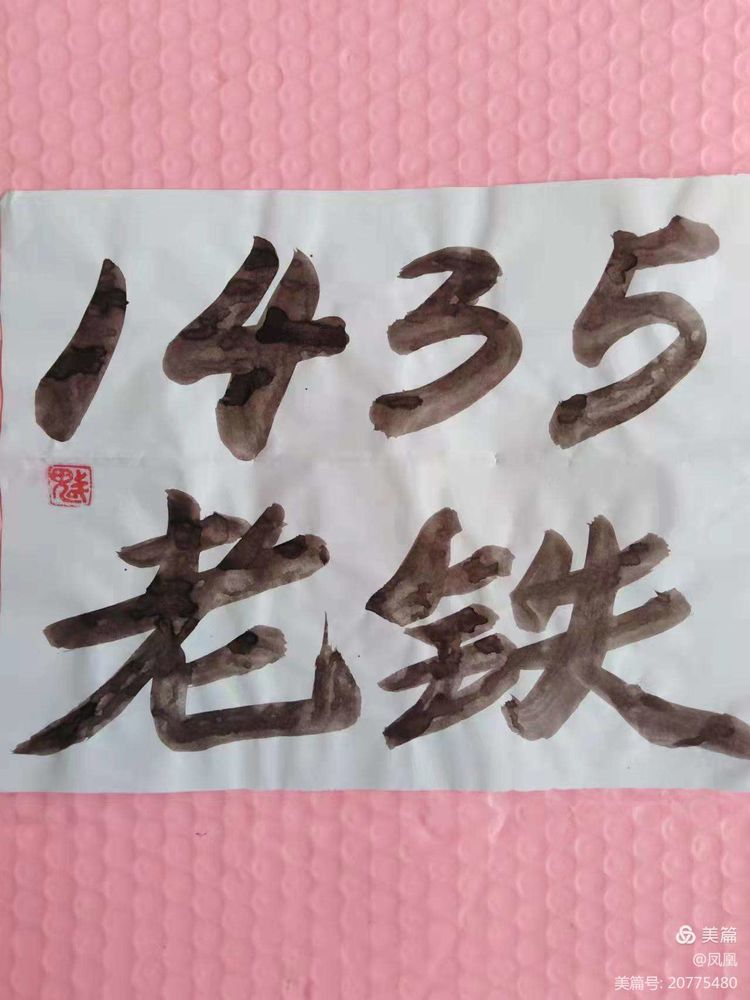 1435
老铁
美篇
@凤凰
美篇号: 20775480